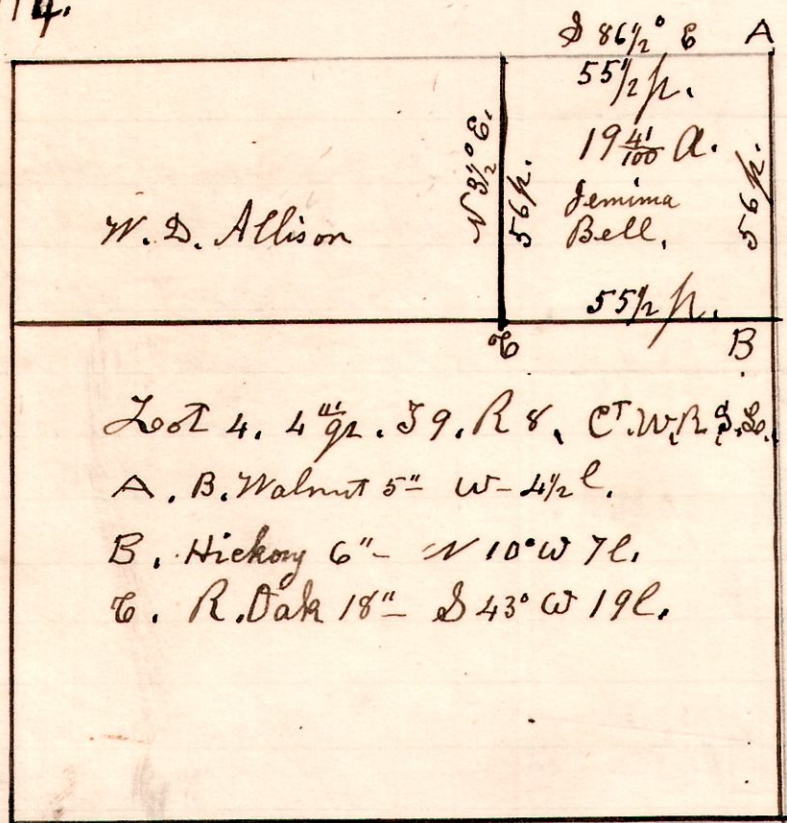 14.
S 86 1/2° E A
55 1/2 p.
19 41/100 A.
Jemima
Bell.
N 3 1/2° E.
56 p.
56 p.
W. D. Allison
55 1/2 p.
C B
Lot 4. 4th qr. T 9. R 8. Ct. W. R. S. L.
A. B. Walnut 5" W 4 1/2 l.
B. Hickory 6" N 10° W 7 l.
C. R. Oak 18" S 43° W 19 l.